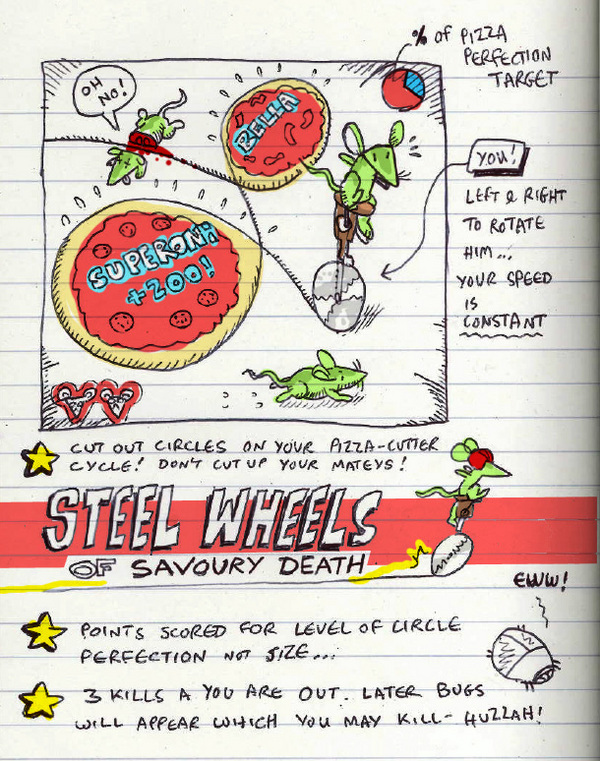 % OF PIZZA
PERFECTION
TARGET
OH
NO!
BELLA
YOU!
LEFT & RIGHT
TO ROTATE
HIM...
YOUR SPEED
IS
CONSTANT
SUPERONI
+200!
CUT OUT CIRCLES ON YOUR PIZZA-CUTTER
CYCLE! DON'T CUT UP YOUR MATEYS!
STEEL WHEELS
OF SAVOURY DEATH
EWW!
POINTS SCORED FOR LEVEL OF CIRCLE
PERFECTION NOT SIZE...
3 KILLS & YOU ARE OUT. LATER BUGS
WILL APPEAR WHICH YOU MAY KILL - HUZZAH!